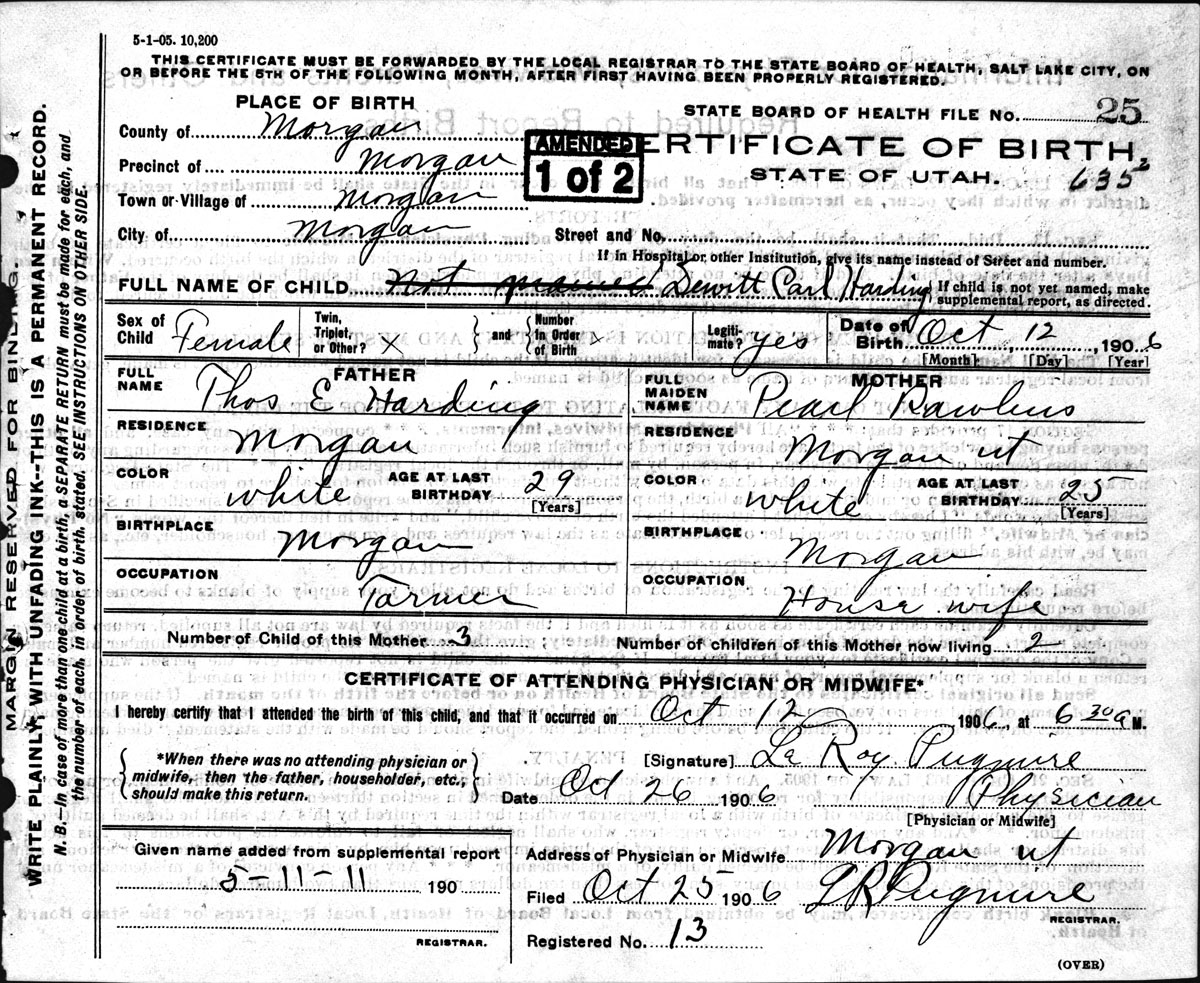 5-1-05. 10,200
THIS CERTIFICATE MUST BE FORWARDED BY THE LOCAL REGISTRAR TO THE STATE BOARD OF HEALTH, SALT LAKE CITY, ON
OR BEFORE THE 5TH OF THE FOLLOWING MONTH, AFTER FIRST HAVING BEEN PROPERLY REGISTERED.
PLACE OF BIRTH
STATE BOARD OF HEALTH FILE NO. 25
County of Morgan
AMENDED
1 of 2
ERTIFICATE OF BIRTH,
Precinct of Morgan
STATE OF UTAH. 635
Town or Village of Morgan
City of Morgan Street and No.
If in Hospital or other Institution, give its name instead of Street and number.
FULL NAME OF CHILD Not named Dewitt Carl Harding { If child is not yet named, make
supplemental report, as directed.
Sex of Child Female Twin, Triplet, or Other? x } and { Number in Order of Birth x Legitimate? yes Date of Birth Oct 12, 1906
[Month] [Day] [Year]
FATHER MOTHER
FULL NAME Thos E Harding FULL MAIDEN NAME Pearl Rawlins
RESIDENCE Morgan RESIDENCE Morgan ut
COLOR white AGE AT LAST BIRTHDAY 29 COLOR White AGE AT LAST BIRTHDAY 25
[Years] [Years]
BIRTHPLACE Morgan BIRTHPLACE Morgan
OCCUPATION Farmer OCCUPATION House wife
Number of Child of this Mother 3 Number of children of this Mother now living 2
CERTIFICATE OF ATTENDING PHYSICIAN OR MIDWIFE*
I hereby certify that I attended the birth of this child, and that it occurred on Oct 12 1906, at 6 30 a M.
{ *When there was no attending physician or
midwife, then the father, householder, etc.,
should make this return. }
[Signature] Le Roy Pugmire
Date Oct 26 1906 Physician
[Physician or Midwife]
Given name added from supplemental report
5-11-11 190
REGISTRAR.
Address of Physician or Midwife Morgan ut
Filed Oct 25 1906 L R Pugmire
REGISTRAR.
Registered No. 13
(OVER)
MARGIN RESERVED FOR BINDING.
WRITE PLAINLY, WITH UNFADING INK--THIS IS A PERMANENT RECORD.
N. B.—In case of more than one child at a birth, a SEPARATE RETURN must be made for each, and
the number of each, in order of birth, stated. SEE INSTRUCTIONS ON OTHER SIDE.